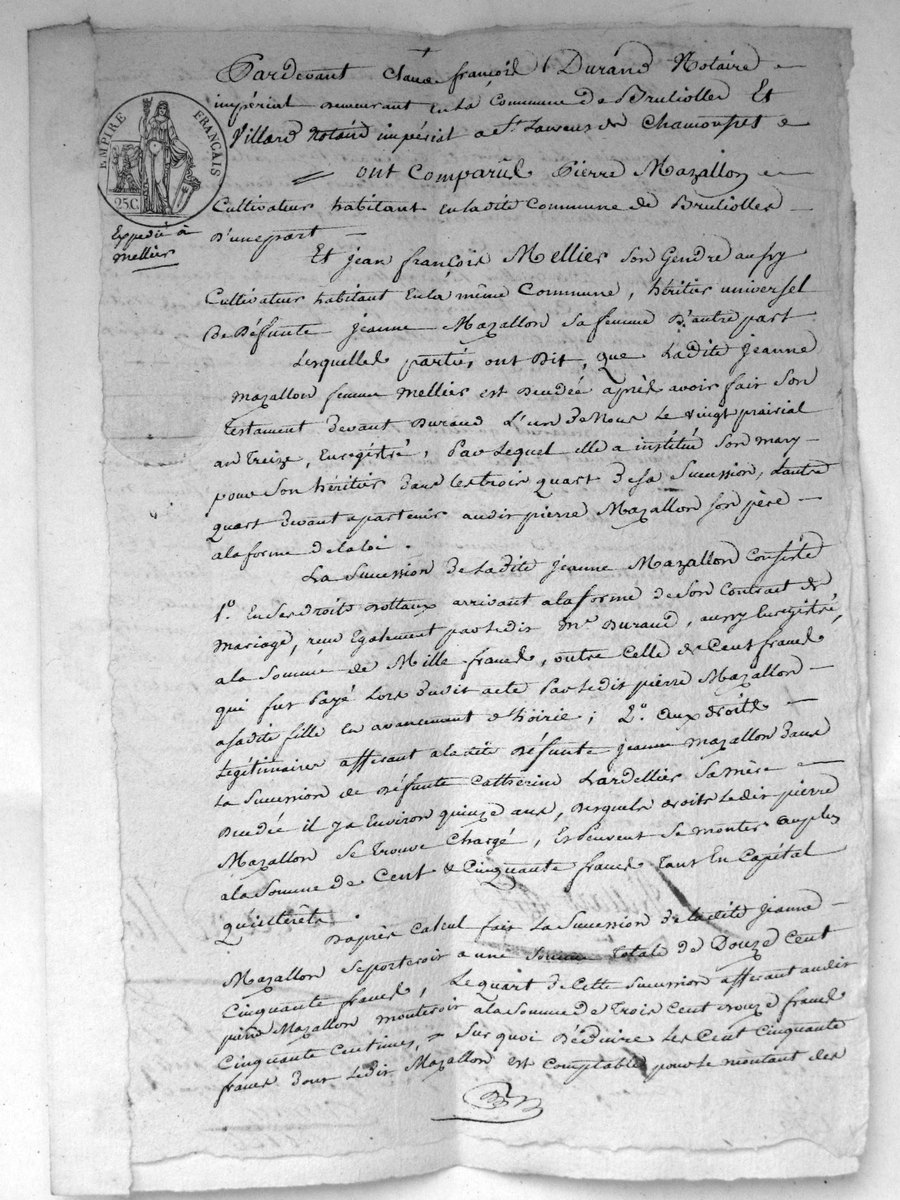 Pardevant Claude françois Durand Notaire
impérial demeurant en la Commune de Brullioles Et
Villard Notaire impérial a St. Laurens de Chamousset
EMPIRE FRANÇAIS
25C
ont Comparus Pierre Mazallon
Cultivateur habitant en ladite Commune de Brullioles
D'une part
Expedié à
Mellier
Et jean françois Mellier son Gendre aussy
Cultivateur habitant en la même Commune, héritier universel
De Défunte jeanne Mazallon sa femme D'autre part
Lesquelles parties, ont Dit, que Ladite jeanne
Mazallon femme Mellier est Decedée après avoir fait son
Testament devant Durand L'un de Nous le vingt prairial
an Treize, Enregistré, Par Lequel elle a institué son mary
pour son héritier dans les trois quart de sa Sucession, L'autre
quart devant apartenir audit pierre Mazallon son père
a la forme de la loi.
La Sucession de Ladite jeanne Mazallon Consiste
1o. En ses droits dottaux arrivant a la forme de son Contrat de
Mariage, reçu Egalement par ledit Me. Durand, aussy Enregistré,
a la Somme de Mille francs, outre Celle de Cent francs
qui fut Payé Lors dudit acte Par ledit pierre Mazallon
a sadite fille en avancement d'hoirie; 2o. aux droits
Légitimaires afferant a ladite Défunte jeanne Mazallon dans
La Sucession de Défunte Catherine Lardellier sa mère
Decedée il y a Environ quinze ans, Desquels droits Ledit pierre
Mazallon se Trouve Chargé, Et Peuvent se monter au plus
a la Somme de Cent & Cinquante francs Tant En Capital
qu'intérêts.
D'après Calcul fait La Sucession de ladite jeanne
Mazallon se porteroit a une Somme Totale de Douze Cent
Cinquante francs, Le quart de Cette Sucession afferant audit
pierre Mazallon monteroit a la Somme de Trois Cent Douze francs
Cinquante Centimes, Sur quoi Déduire Les Cent Cinquante
francs dont Ledit Mazallon est Comptable pour le montant des